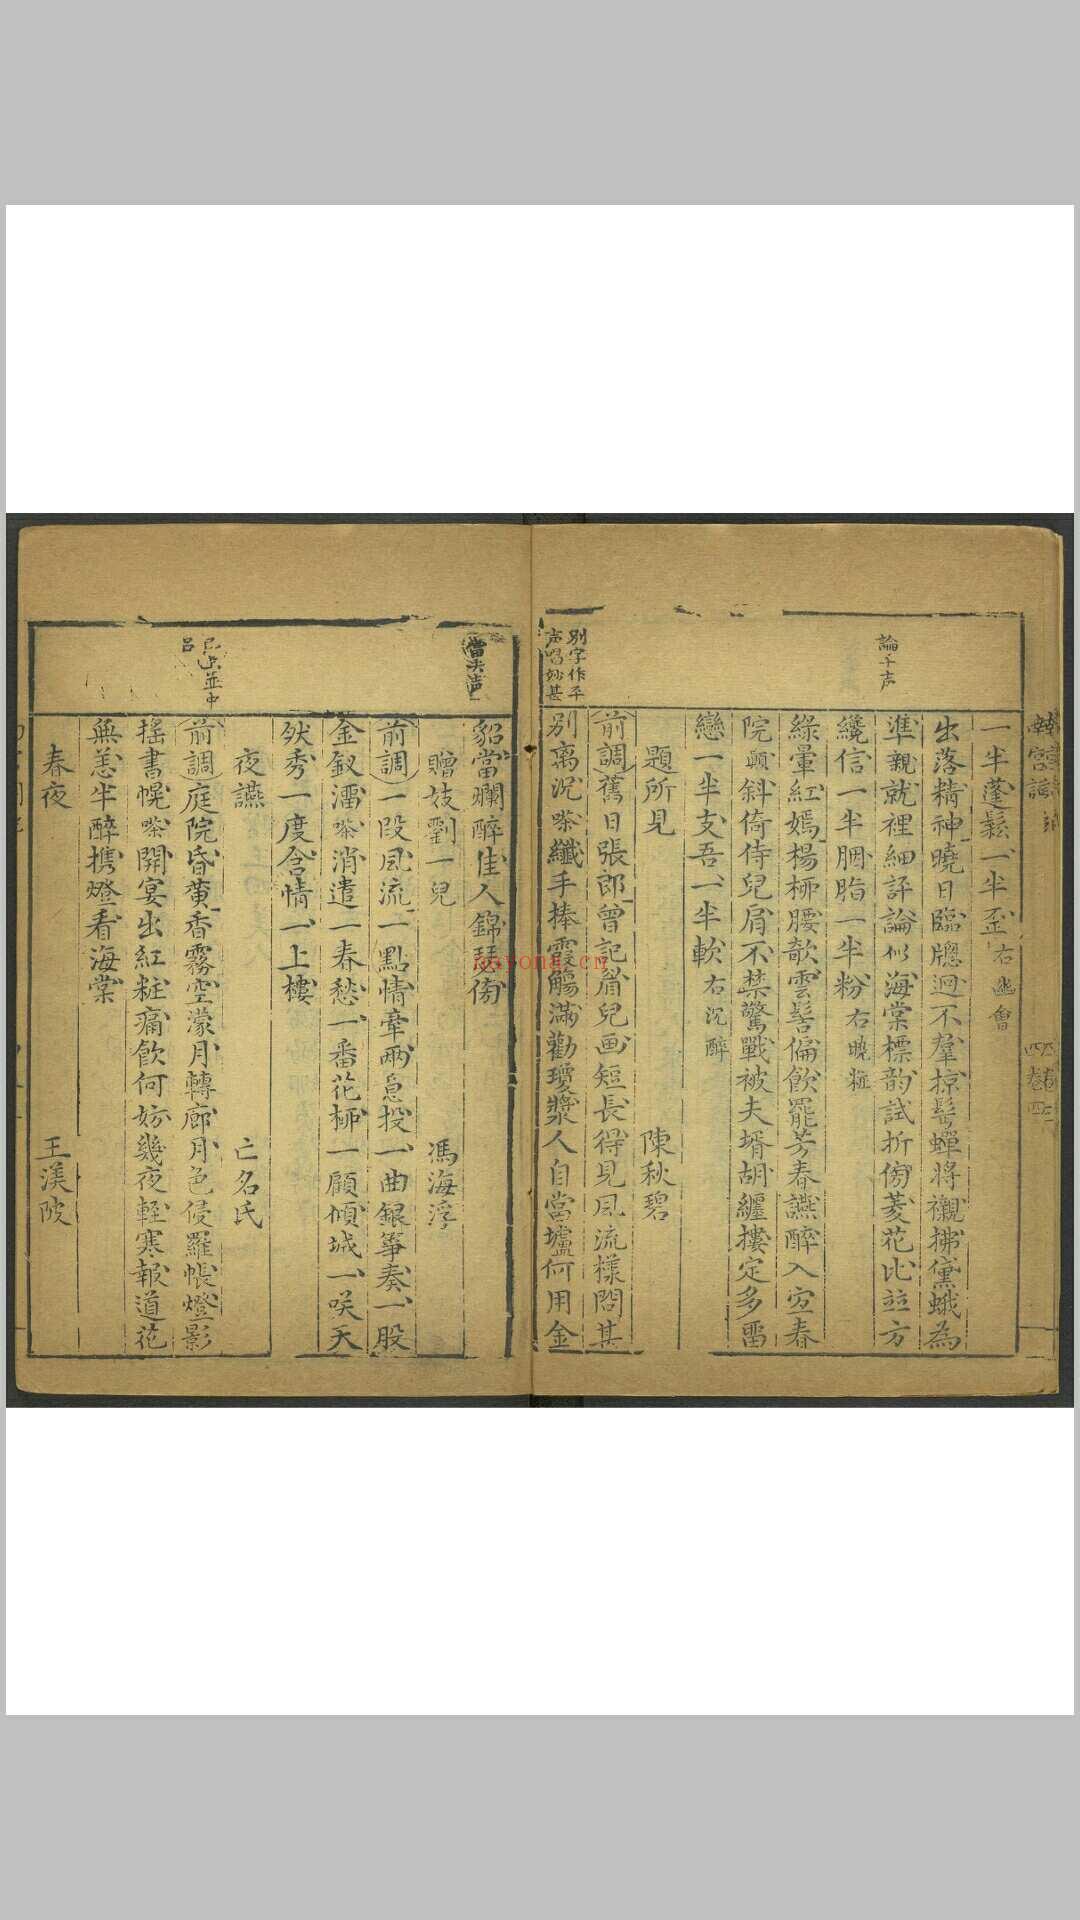 論平声
別字作平
声唱妙甚
一半蓬鬆一半歪右幽會
出落精神曉日臨牕迥不羣掠鬂蟬將襯拂黛蛾為
準親就裡細評論似海棠標韵試折傍菱花比竝方
纔信一半胭脂一半粉右曉粧
綠暈紅嫣楊柳腰欹雲髻偏飲罷芳春讌醉入宓春
院顫斜倚侍兒肩不禁驚戰被夫壻胡纏摟定多畱
戀一半支吾一半軟右沉醉
題所見 陳秋碧
前調舊日張郎曾記眉兒画短長得見風流樣問甚
別离况嗏纖手捧霞觴滿勸瓊漿人自當壚何用金
當去声
已上並中
呂
貂當爛醉佳人錦瑟傍
贈妓劉一兒 馮海浮
前調一段風流一點情牽兩意投一曲銀箏奏一股
金釵溜嗏消遣一春愁一番花柳一顧傾城一咲天
然秀一度含情一上樓
夜讌 亡名氏
前調庭院昏黄香霧空濛月轉廊月色侵羅帳燈影
揺書幌嗏開宴出紅粧痛飲何妨幾夜輕寒報道花
無恙半醉携燈看海棠
春夜 王渼陂
asyona.cn